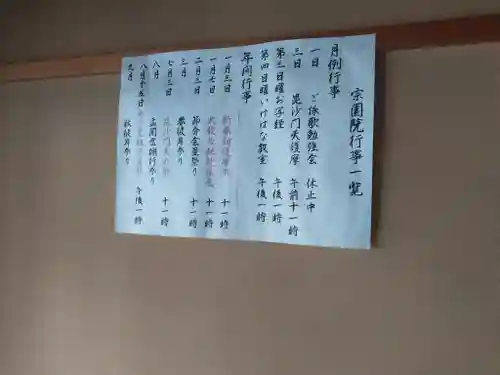 宗園院行事一覧
月例行事
一日 ご詠歌勉強会 休止中
三日 毘沙門天護摩 午前十一時
第三日曜 お写経 午後一時
第四日曜 いけばな教室 午後一時
年間行事
一月三日 十一時
一月七日 十一時
二月三日 節分会星祭り 十一時
三月 春彼岸祭り
七月三日 十一時
八月 盂蘭盆 棚行参り
八月十五日 午後一時
九月 秋彼岸祭り